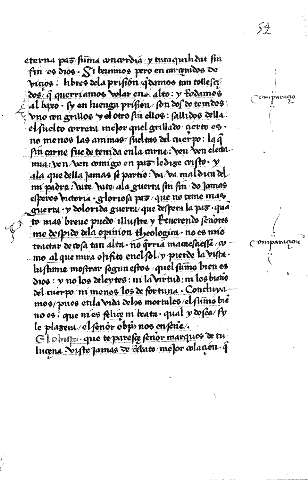 54
eterna paz suma concordia y tranquilidat sin
fin es dios. Si bivimos pero encargados de
vicios: libres dela prision. quedamos tan
dos. que querriamos volar en alto: y Rodamos
al baxo. sy en luenga prision. son dos detenidos
uno con grillos y el otro sin ellos: sallidos della
el suelto correra mejor quel grillado. çerto es.
no menos las animas sueltas del cuerpo: la que
sin carne fue detenida enla carne. ven ven eleta
mia: ven ven comigo en paz le dize cristo. y
ala que della jamas se partio: va va maldita del
mi padre: vete vete ala guerra sin fin. do jamas
esperes victoria. gloriosa paz. que no teme mas
guerra. y dolorida guerra. que desespera la paz. qua
to mas breve puedo illustre y Reverendo señores
me despido dela opinion theologica. no es mio
tractar de cosa tan alta. no querria me acaesciesse. co
mo al que mira ofito enel sol. y pierde la vista
bastame mostrar segun estos. quel sumo bien es
dios: y no los deleytes: ni la virtud: ni los bienes
del cuerpo. ni menos los de fortuna. Concluya
mos. pues enla vida delos mortales. el sumo bie
no es: que ni es felice ni beata. qual y do sea. sy
le plazera. el señor obispo nos enseñe.
El obispo. que te paresçe señor marques de tu
lucena. viste jamas de debate. mejor colaçion. que
comparacio
comparacion